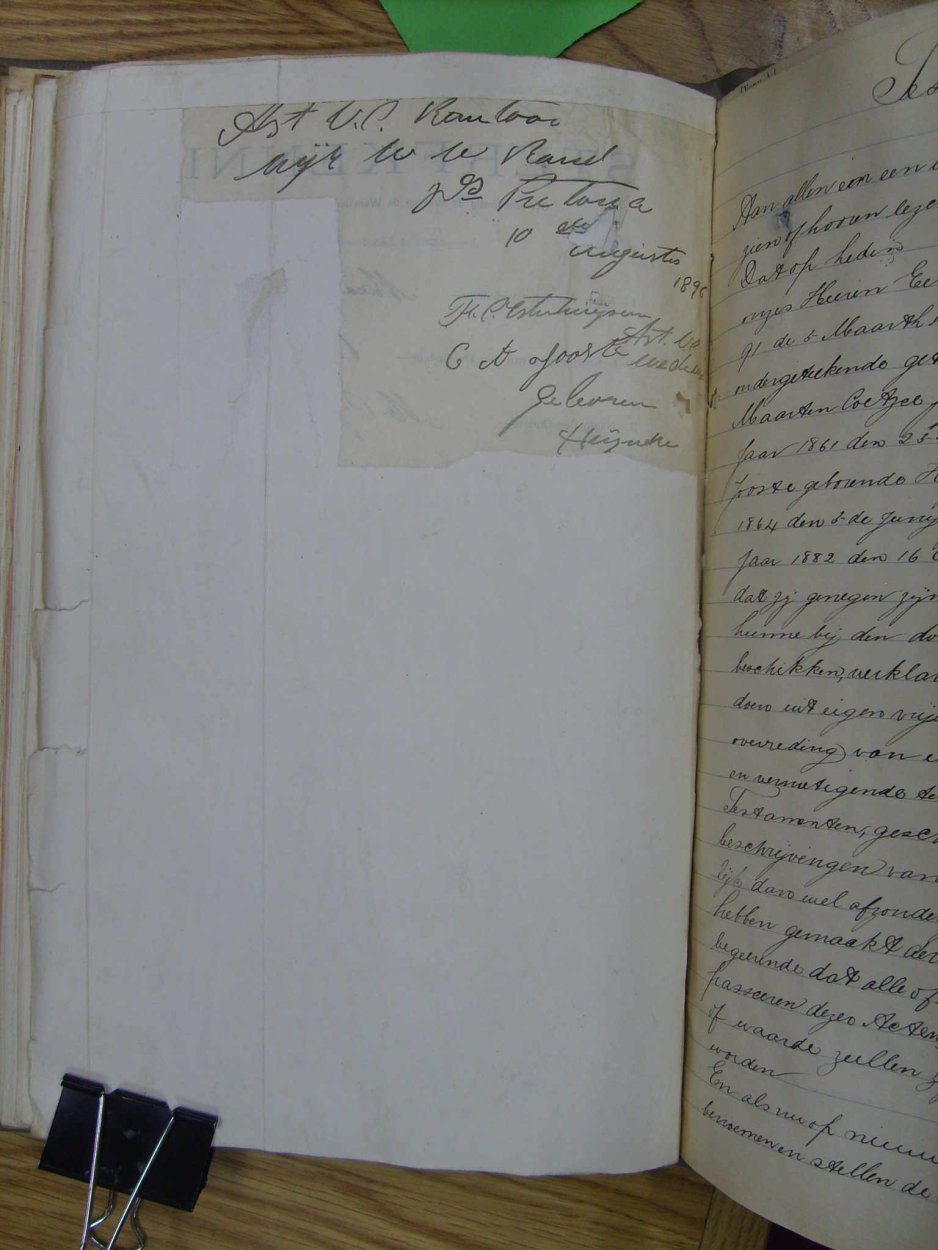 Ast V.C. Kantoor
wijk W W Rand
Pretoria
10 de Augustus
1896
C A Jooste
geboren
Heijneke
Aan allen een een
zien of hooren leze
Dat op heden
onzes Heeren
91 de 5 Maart
ondergeteekende
Maarten Coetzee
Jaar 1861 den 25
Jooste geborende H
1864 den 5 de Junij
Jaar 1882 den 16
dat zij genegen zijn
hunne bij den do
beschikken, verklar
doen uit eigen vrije
overreding van
en vernietigende
Testamenten, gesch
beschrijvingen van
lijk dan wel afzonde
hebben gemaakt der
begeerende dat alle of
passeeren dezes Acten
of waarde zullen
worden
En als nu op nieuw
benoemen en stellen de